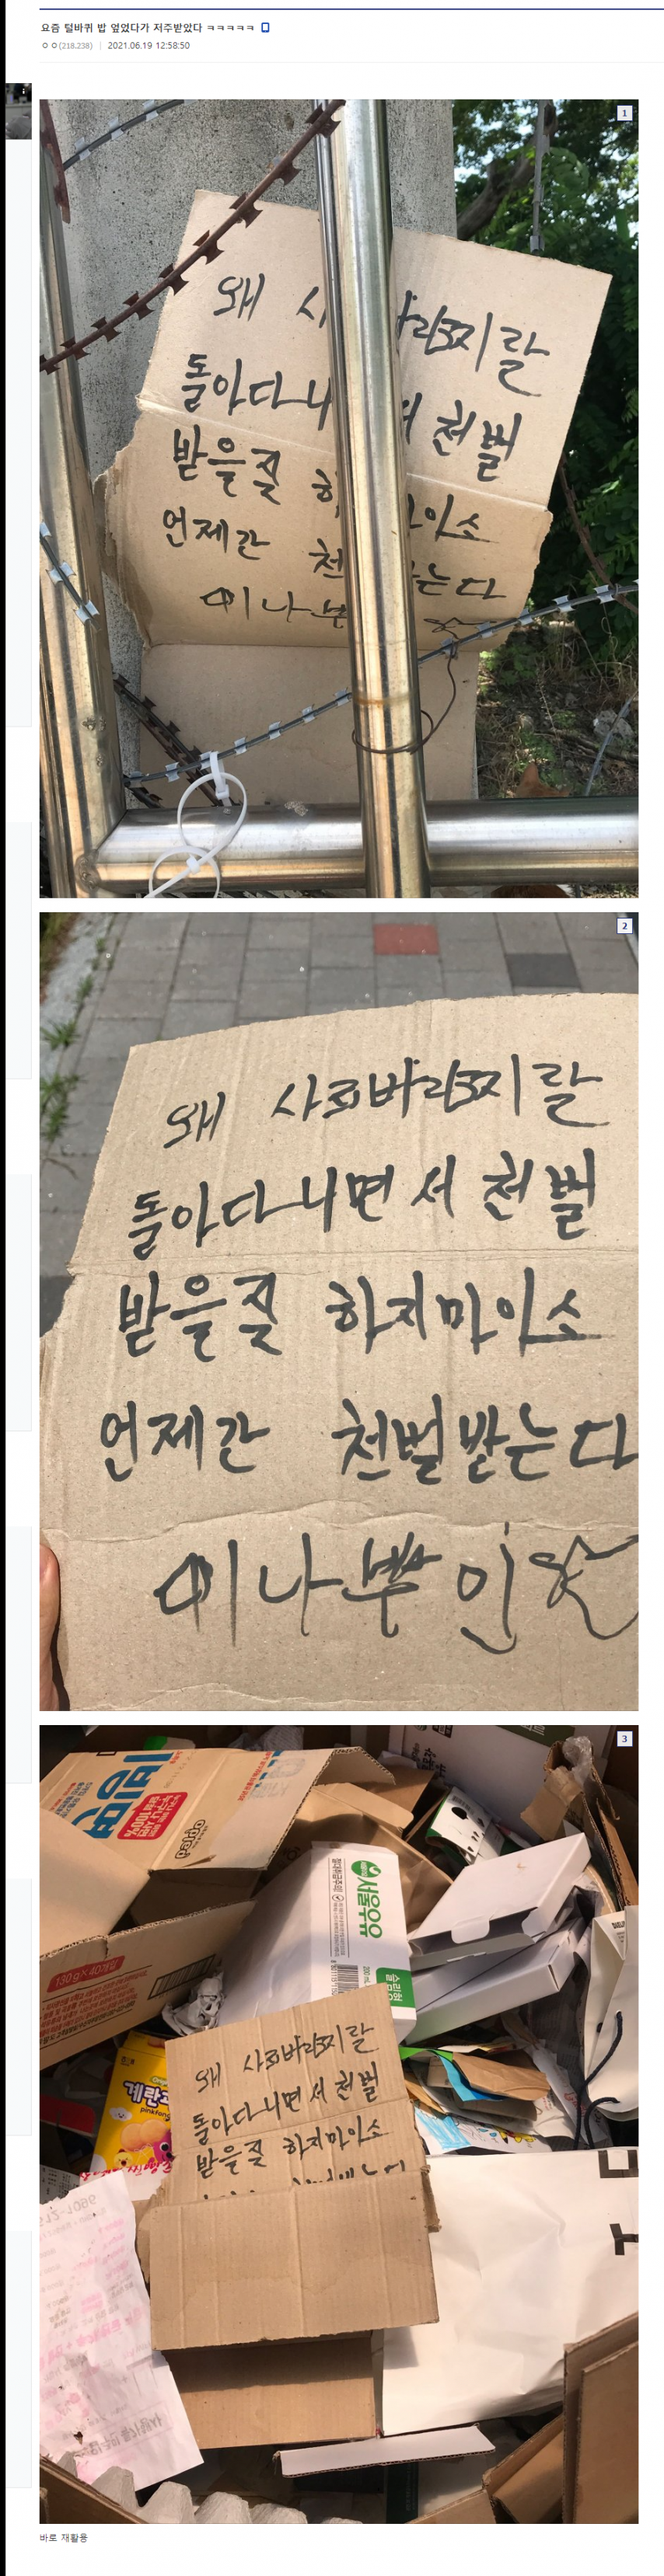 요즘 털바퀴 밥 엎었다가 저주받았다 ㅋㅋㅋㅋㅋ
ㅇㅇ(218.238) | 2021.06.19 12:58:50
1
왜 사 지랄
돌아다니 천벌
받을 짓 하 이소
언제간 천 는다
이 나쁜
2
왜 지랄
돌아다니면서 천벌
받을 짓 하지마이소
언제간 천벌받는다
이 나쁜 인
3
빙면
opted
130g×40개입
서울우유
슬림형
200 mL
계란과
pinkfong
왜 지랄
돌아다니면서 천벌
받을 짓 하지마이소
바로 재활용